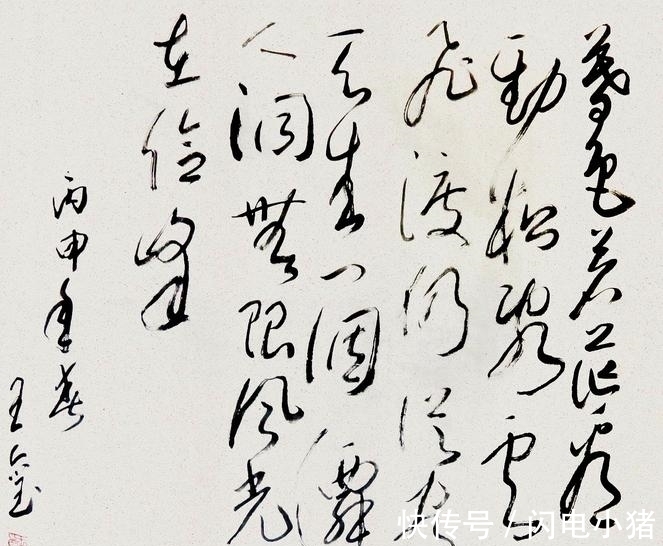 暮色苍茫看
劲松乱云
飞渡仍从容
天生一個僊
人洞無限风光
在险峰
丙申年春
王
快传号 / 闪电小猪